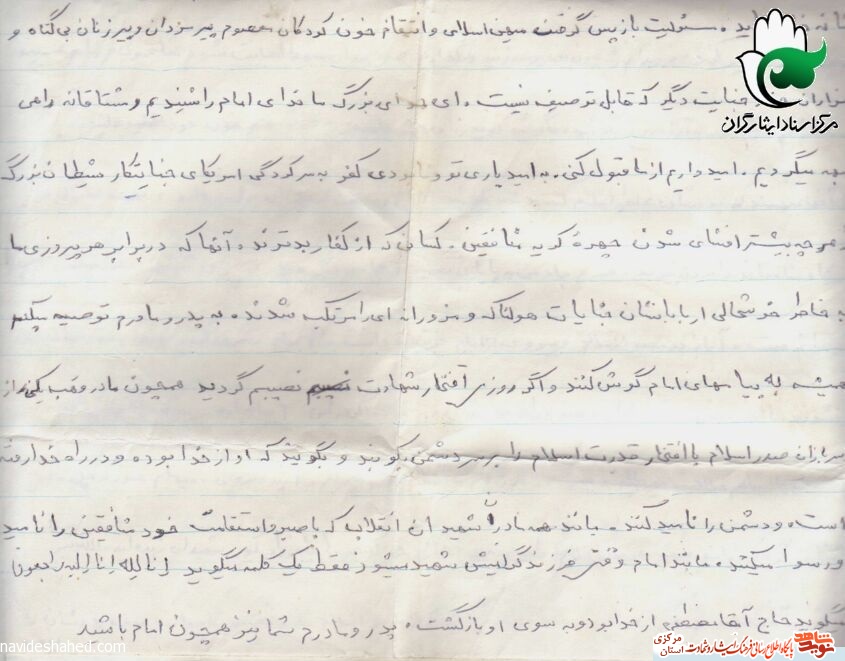 مسئولیت بازپس گرفتن میهن اسلامی و انتقام خون کودکان معصوم پیرمردان و پیرزنان بی گناه و
جنایت دیگر که قابل توصیف نیست. ای خدای بزرگ ما ندای امام را شنیدیم و مشتاقانه راهی
میگردیم. امیدواریم از ما قبول کنی. به امید یاری تو و نابودی کفر به سرکردگی امریکای جنایتکار شیطان بزرگ
هرچه بیشتر افشای شدن چهرۀ کریه منافقین. کسانی که از کفار بدترند. آنها که در برابر هر پیروزی ما
به خاطر خوشحالی اربابانشان جنایات هولناک و مزورانه ای را مرتکب شدند. به پدر و مادرم توصیه میکنم
همیشه به پیامهای امام گوش کنند و اگر روزی افتخار شهادت نصیبم گردید همچون مادر وهب یکی از
سربازان صدر اسلام با افتخار قدرت اسلام را بر سر دشمن بکوبند و بگویند که او از خدا بوده و در راه خدا رفته
است و دشمن را ناامید کنند. مانند همه مادران شهیدان انقلاب که با صبر و استقامت خود منافقین را ناامید
و رسوا میکنند. مانند امام وقتی فرزند گرامیش شهید میشود فقط یک کلمه میگوید انا لله و انا الیه راجعون
میگوید حاج آقا مصطفی از خدا بود و به سوی او بازگشت. پدر و مادرم شما نیز همچون امام باشید
مرکز اسناد ایثارگران
navideshahed.com
نوید شاهد
پایگاه اطلاع رسانی فرهنگ ایثار و شهادت
استان مرکزی